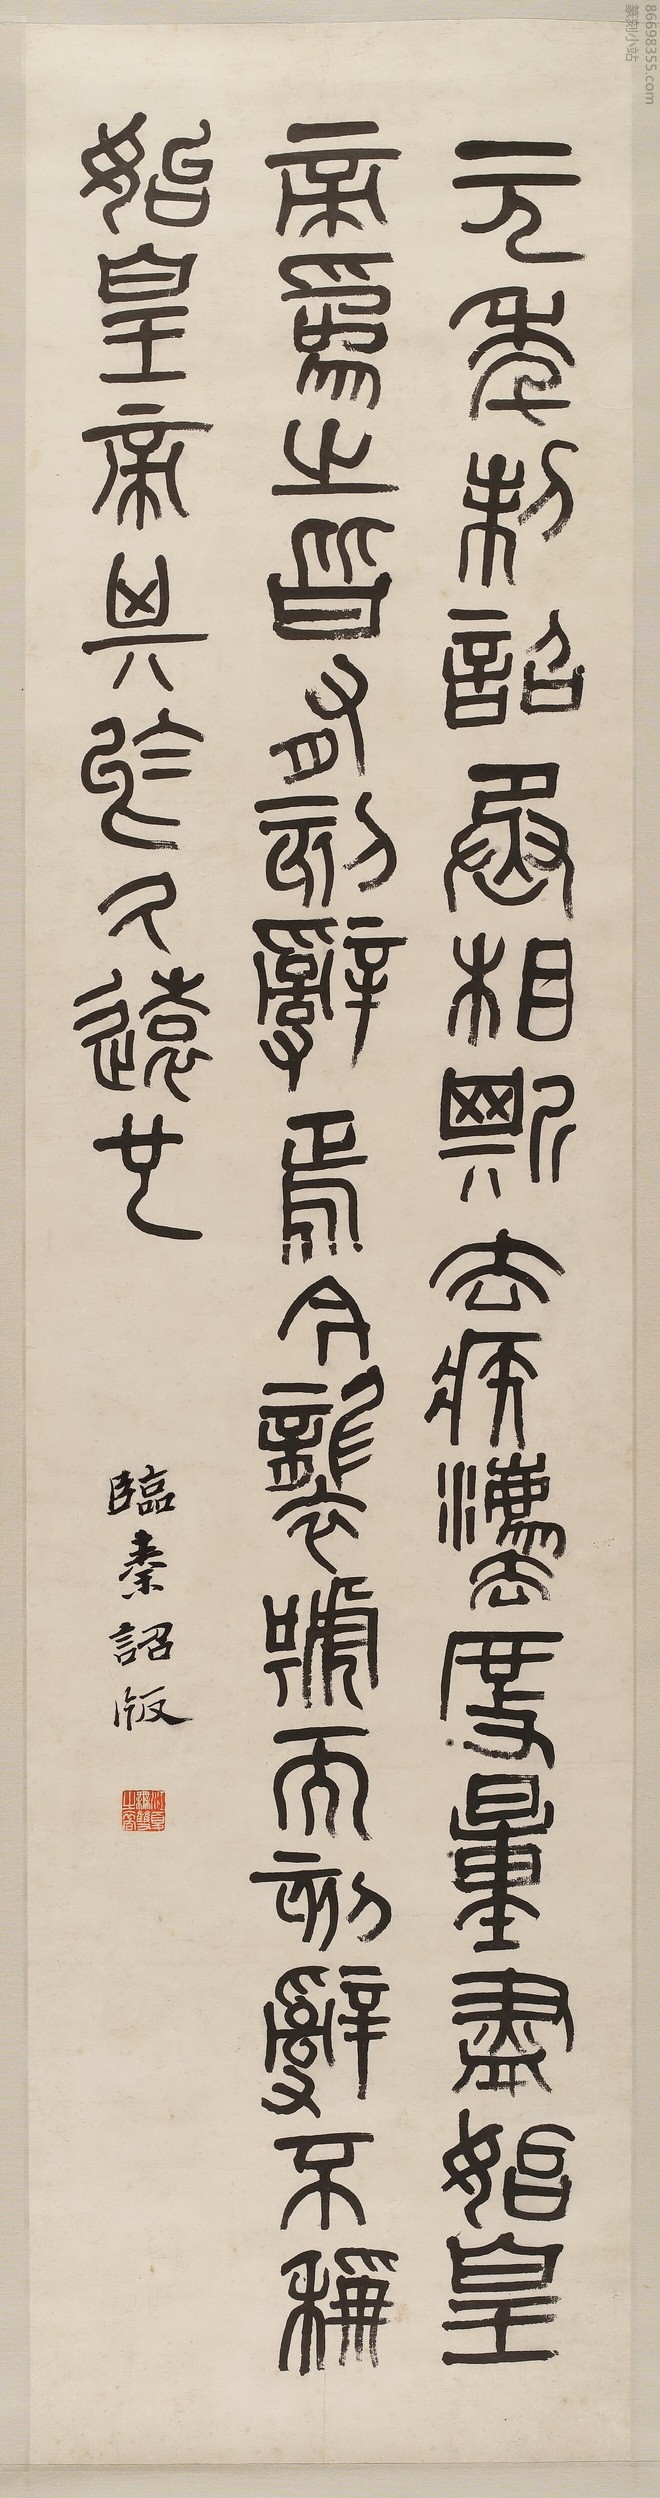 元年制詔丞相斯去疾灋度量盡始皇
帝為之皆有刻辭焉今襲號而刻辭不稱
始皇帝其於久遠也
臨秦詔版
86698355.com
篆刻小站